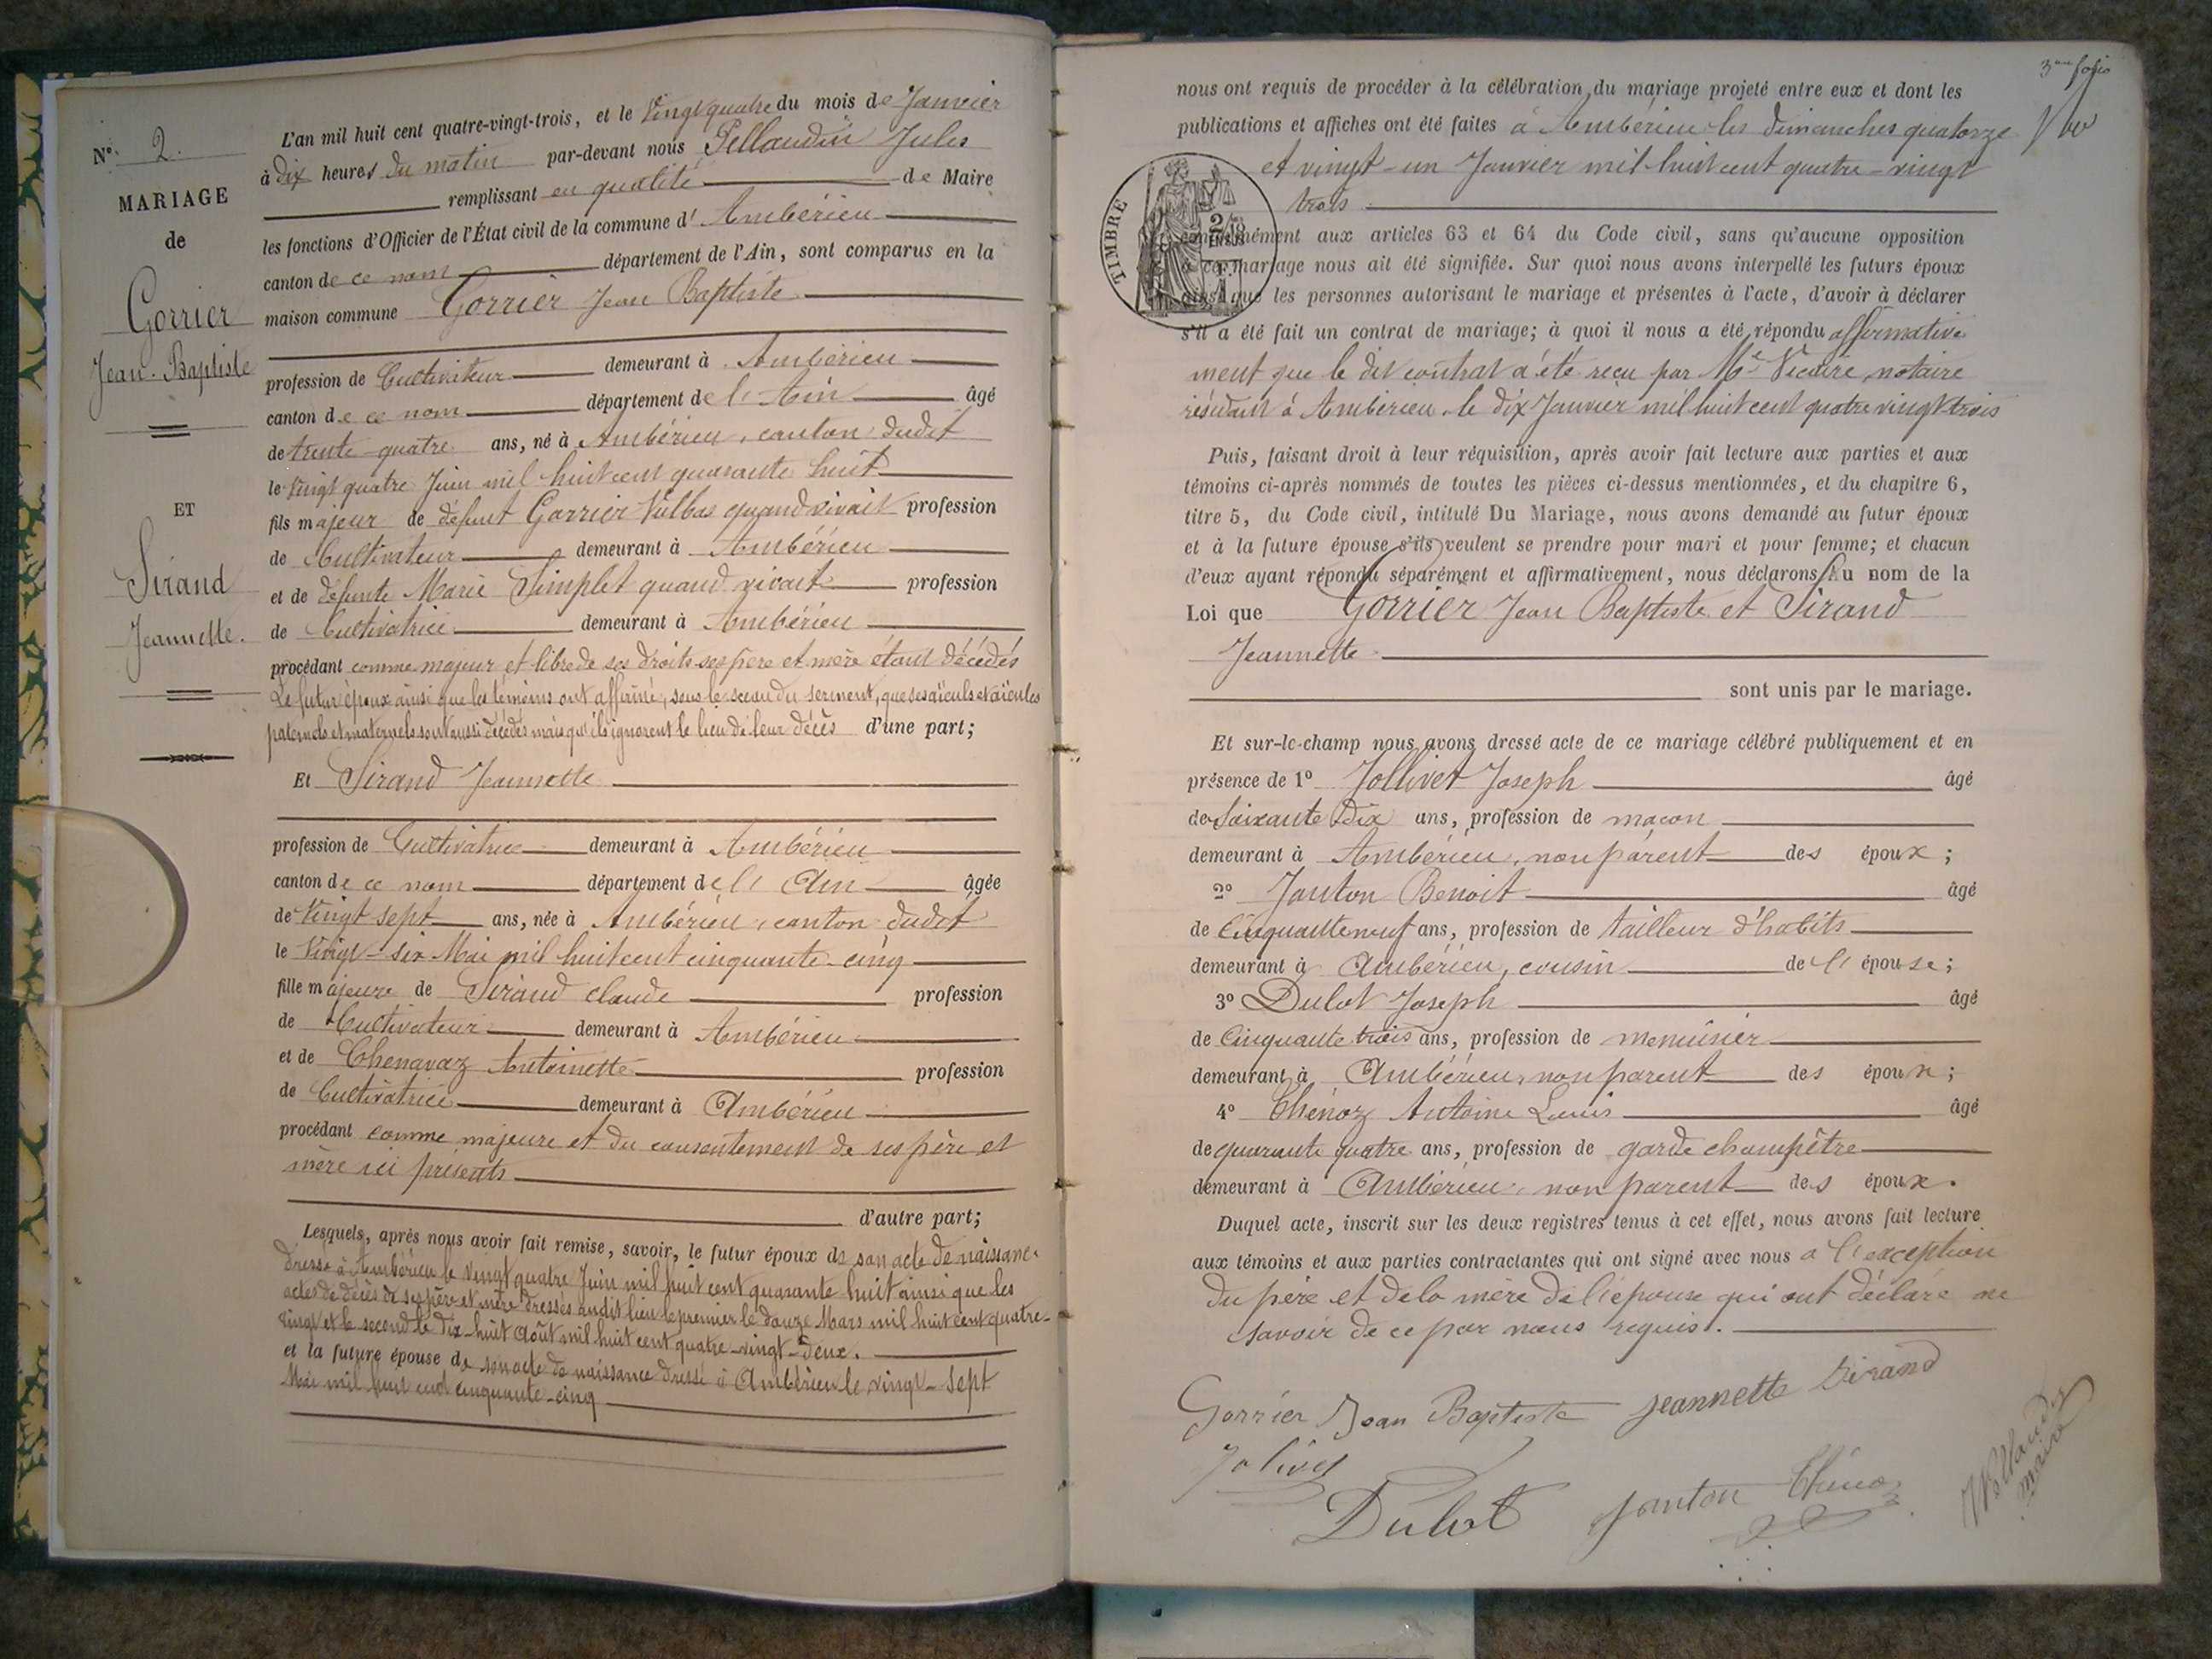 N° 2.
MARIAGE
de
Gorrier
Jean-Baptiste
ET
Sirand
Jeannette.
L'an mil huit cent quatre-vingt-trois, et le Vingt quatre du mois de Janvier
à dix heures du matin par-devant nous Pellaudin Jules
remplissant en qualité de Maire
les fonctions d'Officier de l'État civil de la commune d' Ambérieu
canton de ce nom département de l'Ain, sont comparus en la
maison commune Gorrier Jean Baptiste
profession de Cultivateur demeurant à Ambérieu
canton de ce nom département de l'Ain âgé
de trente-quatre ans, né à Ambérieu, canton dudit
le Vingt quatre Juin mil huit cent quarante huit
fils majeur de défunt Gorrier Vulbas quand vivait profession
de Cultivateur demeurant à Ambérieu
et de défunte Marie Simplet quand vivait profession
de Cultivatrice demeurant à Ambérieu
procédant comme majeur et libre de ses droits ses père et mère étant décédés
Le futur époux ainsi que les témoins ont affirmé, sous le sceau du serment, que ses aïeuls et aïeules
paternels et maternels sont aussi décédés mais qu'ils ignorent le lieu de leur décès d'une part;
Et Sirand Jeannette
profession de Cultivatrice demeurant à Ambérieu
canton de ce nom département de l'Ain âgée
de Vingt sept ans, née à Ambérieu, canton dudit
le Vingt-six Mai mil huit cent cinquante-cinq
fille majeure de Sirand Claude profession
de Cultivateur demeurant à Ambérieu
et de Chenavaz Antoinette profession
de Cultivatrice demeurant à Ambérieu
procédant comme majeure et du consentement de ses père et
mère ici présents
d'autre part;
Lesquels, après nous avoir fait remise, savoir, le futur époux de son acte de naissance
dressé à Ambérieu le vingt quatre Juin mil huit cent quarante huit ainsi que les
actes de décès de ses père et mère dressés audit lieu le premier le douze Mars mil huit cent quatre-
vingt et le second le dix-huit Août mil huit cent quatre-vingt-deux.
et la future épouse de son acte de naissance dressé à Ambérieu le vingt-sept
Mai mil huit cent cinquante-cinq
3me folio
nous ont requis de procéder à la célébration du mariage projeté entre eux et dont les
publications et affiches ont été faites à Ambérieu les dimanches quatorze
et vingt-un Janvier mil-huit cent quatre-vingt
trois
TIMBRE
conformément aux articles 63 et 64 du Code civil, sans qu'aucune opposition
à ce mariage nous ait été signifiée. Sur quoi nous avons interpellé les futurs époux
ainsi que les personnes autorisant le mariage et présentes à l'acte, d'avoir à déclarer
s'il a été fait un contrat de mariage; à quoi il nous a été répondu affirmative
ment que le dit contrat a été reçu par Me Vicaire, notaire
résidant à Ambérieu le dix Janvier mil huit cent quatre vingt trois
Puis, faisant droit à leur réquisition, après avoir fait lecture aux parties et aux
témoins ci-après nommés de toutes les pièces ci-dessus mentionnées, et du chapitre 6,
titre 5, du Code civil, intitulé Du Mariage, nous avons demandé au futur époux
et à la future épouse s'ils veulent se prendre pour mari et pour femme; et chacun
d'eux ayant répondu séparément et affirmativement, nous déclarons Au nom de la
Loi que Gorrier Jean Baptiste et Sirand
Jeannette
sont unis par le mariage.
Et sur-le-champ nous avons dressé acte de ce mariage célébré publiquement et en
présence de 1° Jollivet Joseph âgé
de Soixante Dix ans, profession de maçon
demeurant à Ambérieu, non parent des époux;
2° Janton Benoit âgé
de Cinquante neuf ans, profession de tailleur d'habits
demeurant à Ambérieu, cousin de l'épouse;
3° Dulot Joseph âgé
de Cinquante trois ans, profession de menuisier
demeurant à Ambérieu, non parent des époux;
4° Chénoz Antoine Louis âgé
de quarante quatre ans, profession de garde champêtre
demeurant à Ambérieu, non parent des époux.
Duquel acte, inscrit sur les deux registres tenus à cet effet, nous avons fait lecture
aux témoins et aux parties contractantes qui ont signé avec nous a l'exception
du père et de la mère de l'épouse qui ont déclaré ne
savoir de ce par nous requis.
Gorrier Jean Baptiste Jeannette Sirand
Jolivet
Dulot Janton Chénoz
maire